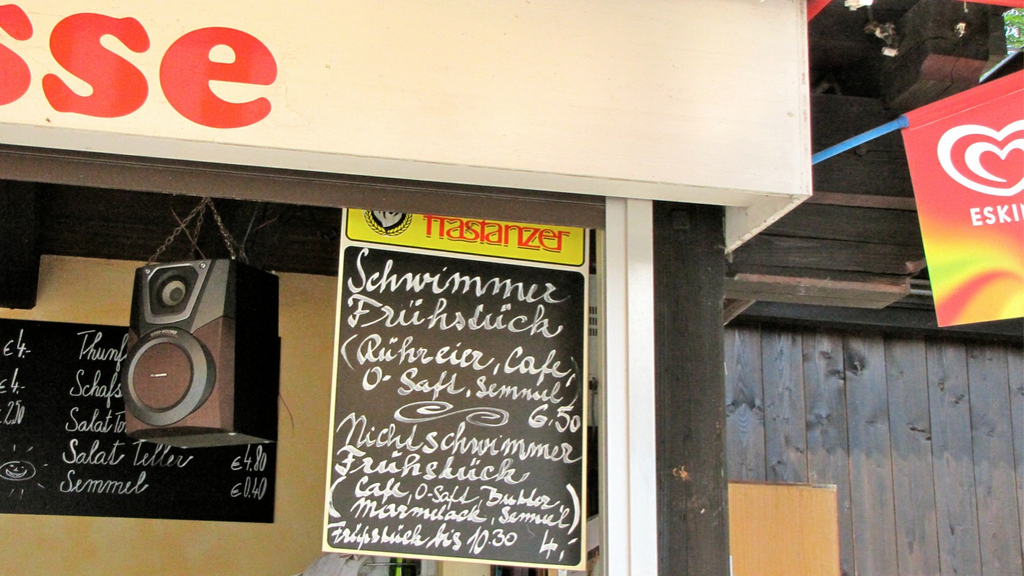 sse
frastanzer
Schwimmer
Frühstück
(Rühreier, Cafe,
O-Saft, Semmel)
6.50
Nichtschwimmer
Frühstück
(Cafe, O-Saft, Butter,
Marmelade, Semmel)
Frühstück bis 10.30 4,-
€4.- Thunf
€4. Schafs
2.00 Salat To
Salat Teller €4.80
Semmel €0.40
ESKI